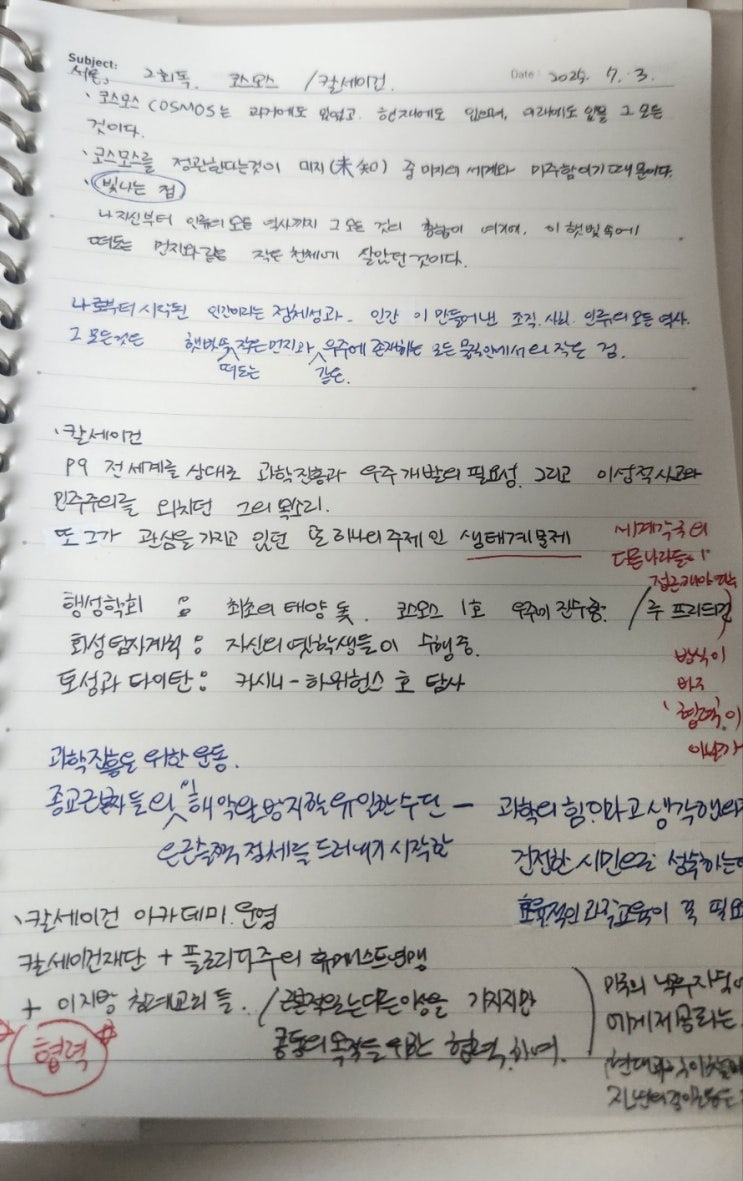 Subject:
서론, 2회독. 코스모스 / 칼세이건. Date: 2025. 7. 3.
· 코스모스 COSMOS는 과거에도 있었고, 현재에도 있으며, 미래에도 있을 그 모든
것이다.
· 코스모스를 정관한다는것이 미지(未知) 중 미지의 세계와 마주함이기 때문이다.
· 빛나는 점
나 자신부터 인류의 모든 역사까지 그 모든 것의 총합이 여기에, 이 햇빛속에
떠도는 먼지와 같은 작은 천체에 살았던 것이다.
나로부터 시작된 인간이라는 정체성과 인간이 만들어낸 조직. 사회. 인류의 모든 역사.
그 모든것은 햇빛속 떠도는 작은 먼지와 같은 우주에 존재하는 모든 물질안에서의 작은 점.
· 칼세이건
P9 전세계를 상대로 과학진흥과 우주개발의 필요성, 그리고 이성적사고와
민주주의를 외치던 그의 목소리.
또 그가 관심을 가지고 있던 또 하나의 주제인 생태계문제
세계각국의
다른나라들이
접근해야
방식이
바로
'협력'이
아닐까
행성학회 : 최초의 태양 돛. 코스모스 1호 우주미 진수중. / 루 프리드먼
화성탐사계획 : 자신의 옛학생들이 수행중.
토성과 타이탄 : 카시니-하위헌스 호 탐사
과학진흥을 위한 운동.
종교근본자들의 은근슬쩍 정체를 드러내기 시작한 해악을 방지할 유일한 수단 - 과학의 힘이라고 생각했으
건전한 시민으로 성숙하는
효율적인 과학교육이 꼭 필요
· 칼세이건 아카데미 운영
칼세이건재단 + 플로리다주의 휴머니스트연맹
+ 이지방 침례교회 들. / 근본적으로는 다른이상을 가지지만
공동의 목적을 위한 협력 하여.
협력
미국의
에게 제공하는